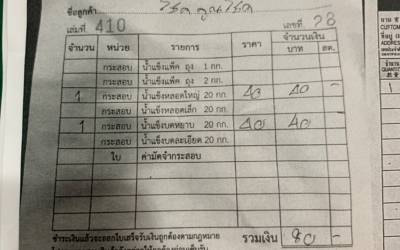 ชื่อลูกค้า
เล่มที่ 410 เลขที่ 28
จำนวน หน่วย รายการ ราคา จำนวนเงิน
บาท สต.
กระสอบ น้ำแข็งแพ็ค ถุง 1 กก.
กระสอบ น้ำแข็งแพ็ค ถุง 2 กก.
1 กระสอบ น้ำแข็งหลอดใหญ่ 20 กก. 40 40 -
กระสอบ น้ำแข็งหลอดเล็ก 20 กก.
1 กระสอบ น้ำแข็งบดหยาบ 20 กก. 40 40 -
กระสอบ น้ำแข็งบดละเอียด 20 กก.
ใบ ค่ามัดจำกระสอบ
ชำระเงินแล้วจะออกใบเสร็จรับเงินถูกต้องตามกฎหมาย
รวมเงิน 80 -
นาม
CUSTOM
ที่อยู่
ADDRESS
จำนวน
QUANTITY
1